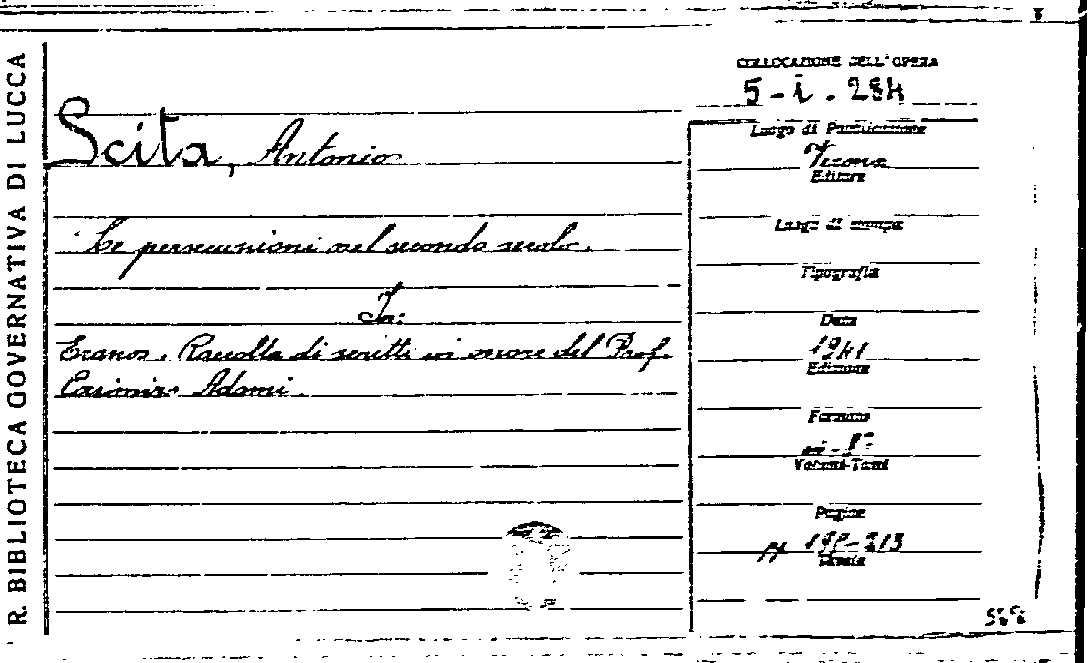 R. BIBLIOTECA GOVERNATIVA DI LUCCA
COLLOCAZIONE DELL'OPERA
5-i. 284
Scita, Antonio
Le persecuzioni nel secondo secolo.
In:
Eranos. Raccolta di scritti in onore del Prof.
Casimiro Adami.
Luogo di Pubblicazione
Verona
Editore
Luogo di stampa
Tipografia
Data
1941
Edizione
Formato
in-8°
Volumi-Tomi
Pagine